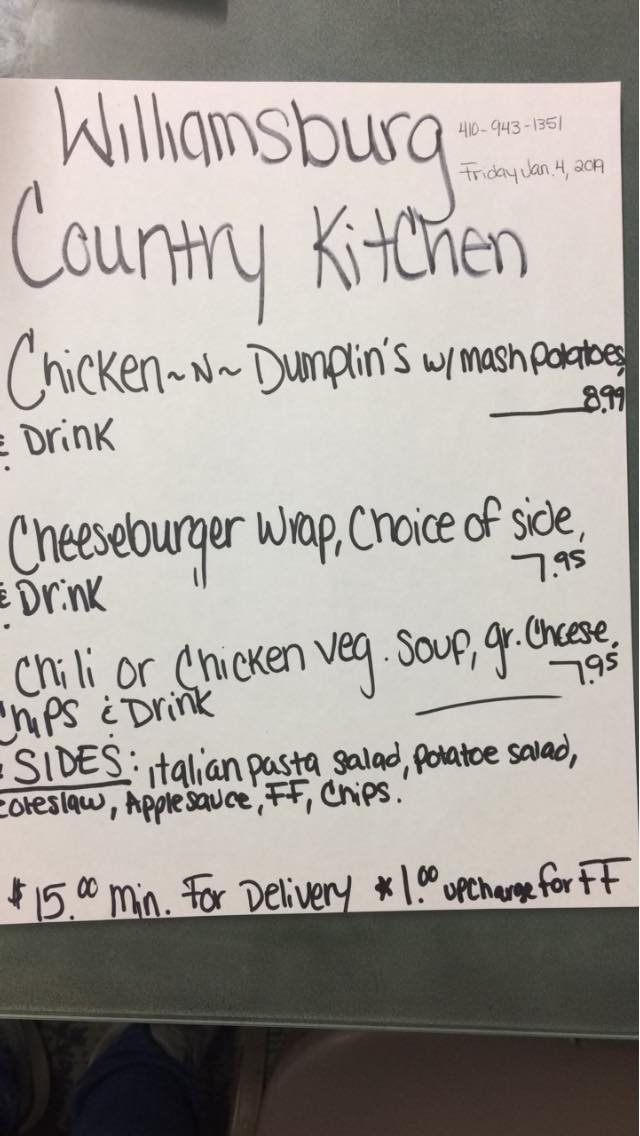 Williamsburg
410-943-1351
Friday Jan. 4, 2019
Country Kitchen
Chicken~N~ Dumplin's w/ mash potatoes,
8.99
& Drink
Cheeseburger Wrap, Choice of side,
7.95
& Drink
Chili or Chicken veg. Soup, gr. Cheese,
7.95
Chips & Drink
SIDES: italian pasta salad, potatoe salad,
coleslaw, Applesauce, FF, Chips.
$15.00 min. For Delivery *1.00 upcharge for FF